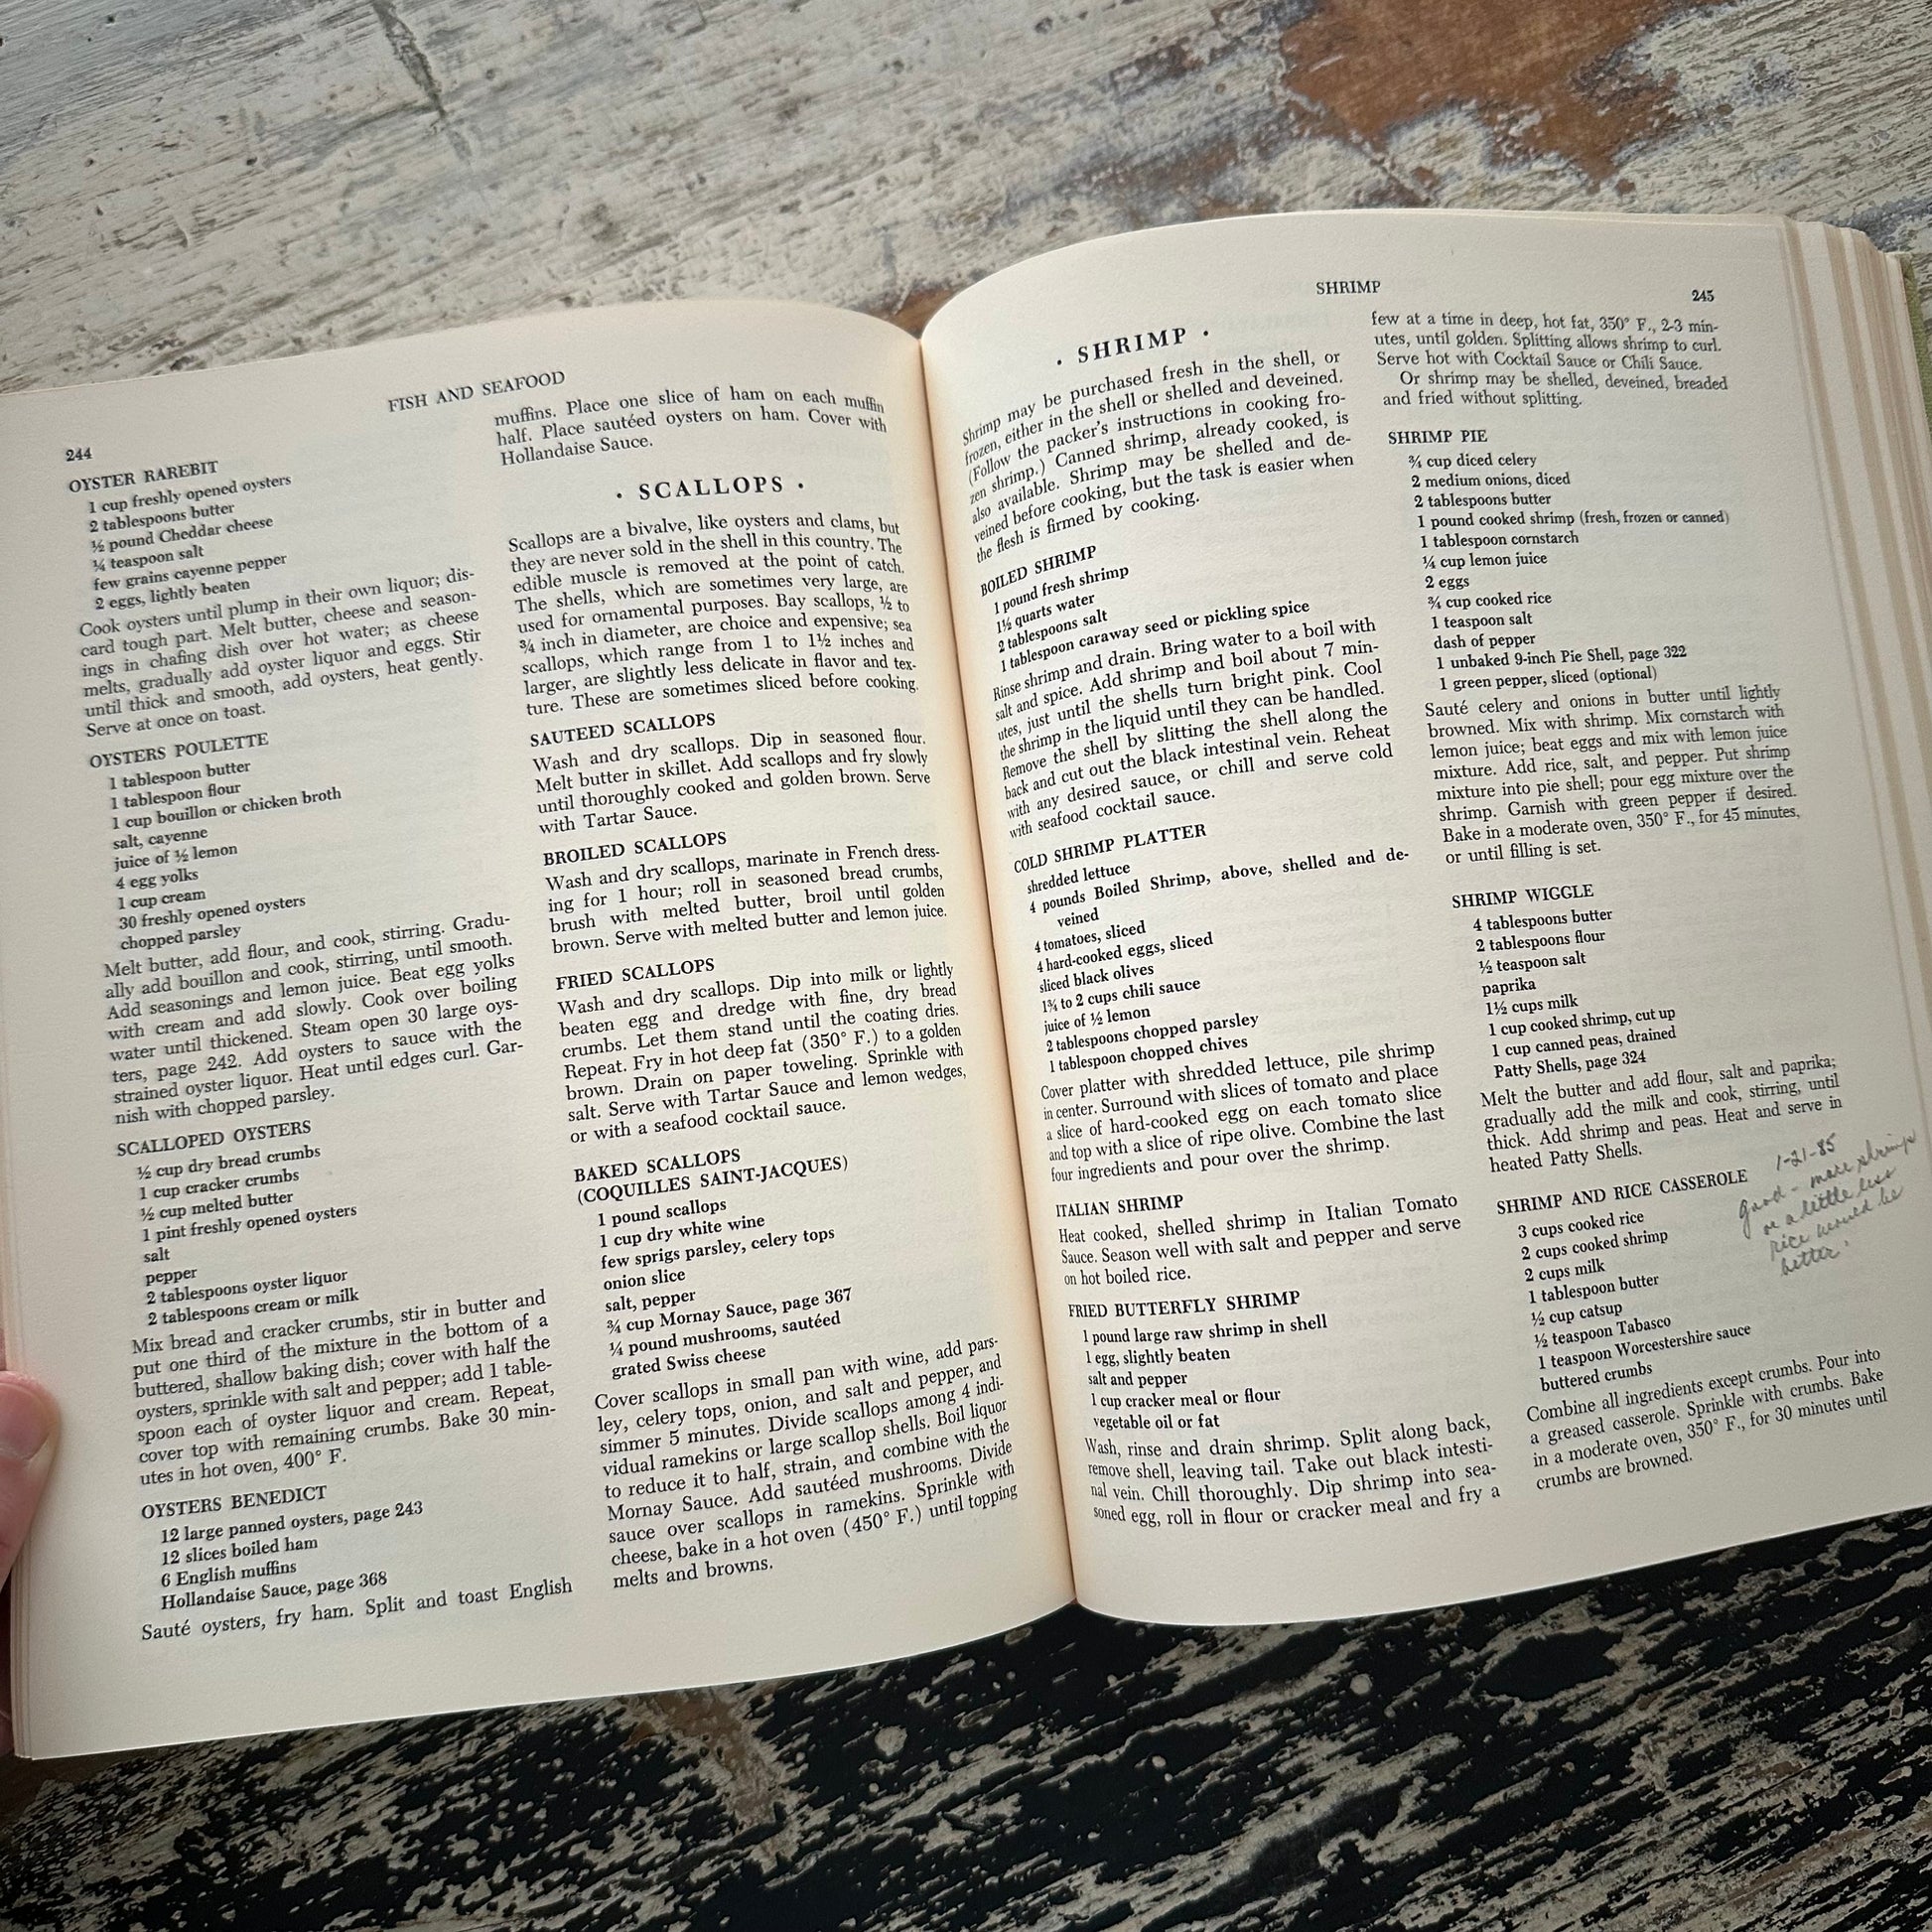 244
FISH AND SEAFOOD
OYSTER RAREBIT
1 cup freshly opened oysters
2 tablespoons butter
½ pound Cheddar cheese
¼ teaspoon salt
few grains cayenne pepper
2 eggs, lightly beaten
Cook oysters until plump in their own liquor; dis-
card tough part. Melt butter, cheese and season-
ings in chafing dish over hot water; as cheese
melts, gradually add oyster liquor and eggs. Stir
until thick and smooth, add oysters, heat gently.
Serve at once on toast.
OYSTERS POULETTE
1 tablespoon butter
1 tablespoon flour
1 cup bouillon or chicken broth
salt, cayenne
juice of ½ lemon
4 egg yolks
1 cup cream
30 freshly opened oysters
chopped parsley
Melt butter, add flour, and cook, stirring. Gradu-
ally add bouillon and cook, stirring, until smooth.
Add seasonings and lemon juice. Beat egg yolks
with cream and add slowly. Cook over boiling
water until thickened. Steam open 30 large oys-
ters, page 242. Add oysters to sauce with the
strained oyster liquor. Heat until edges curl. Gar-
nish with chopped parsley.
SCALLOPED OYSTERS
½ cup dry bread crumbs
1 cup cracker crumbs
½ cup melted butter
1 pint freshly opened oysters
salt
pepper
2 tablespoons oyster liquor
2 tablespoons cream or milk
Mix bread and cracker crumbs, stir in butter and
put one third of the mixture in the bottom of a
buttered, shallow baking dish; cover with half the
oysters, sprinkle with salt and pepper; add 1 table-
spoon each of oyster liquor and cream. Repeat,
cover top with remaining crumbs. Bake 30 min-
utes in hot oven, 400° F.
OYSTERS BENEDICT
12 large panned oysters, page 243
12 slices boiled ham
6 English muffins
Hollandaise Sauce, page 368
Sauté oysters, fry ham. Split and toast English
muffins. Place one slice of ham on each muffin
half. Place sautéed oysters on ham. Cover with
Hollandaise Sauce.
· SCALLOPS ·
Scallops are a bivalve, like oysters and clams, but
they are never sold in the shell in this country. The
edible muscle is removed at the point of catch.
The shells, which are sometimes very large, are
used for ornamental purposes. Bay scallops, ½ to
¾ inch in diameter, are choice and expensive; sea
scallops, which range from 1 to 1½ inches and
larger, are slightly less delicate in flavor and tex-
ture. These are sometimes sliced before cooking.
SAUTEED SCALLOPS
Wash and dry scallops. Dip in seasoned flour.
Melt butter in skillet. Add scallops and fry slowly
until thoroughly cooked and golden brown. Serve
with Tartar Sauce.
BROILED SCALLOPS
Wash and dry scallops, marinate in French dress-
ing for 1 hour; roll in seasoned bread crumbs,
brush with melted butter, broil until golden
brown. Serve with melted butter and lemon juice.
FRIED SCALLOPS
Wash and dry scallops. Dip into milk or lightly
beaten egg and dredge with fine, dry bread
crumbs. Let them stand until the coating dries.
Repeat. Fry in hot deep fat (350° F.) to a golden
brown. Drain on paper toweling. Sprinkle with
salt. Serve with Tartar Sauce and lemon wedges,
or with a seafood cocktail sauce.
BAKED SCALLOPS
(COQUILLES SAINT-JACQUES)
1 pound scallops
1 cup dry white wine
few sprigs parsley, celery tops
onion slice
salt, pepper
¾ cup Mornay Sauce, page 367
¼ pound mushrooms, sautéed
grated Swiss cheese
Cover scallops in small pan with wine, add pars-
ley, celery tops, onion, and salt and pepper, and
simmer 5 minutes. Divide scallops among 4 indi-
vidual ramekins or large scallop shells. Boil liquor
to reduce it to half, strain, and combine with the
Mornay Sauce. Add sautéed mushrooms. Divide
sauce over scallops in ramekins. Sprinkle with
cheese, bake in a hot oven (450° F.) until topping
melts and browns.
SHRIMP
245
· SHRIMP ·
Shrimp may be purchased fresh in the shell, or
frozen, either in the shell or shelled and deveined.
(Follow the packer's instructions in cooking fro-
zen shrimp.) Canned shrimp, already cooked, is
also available. Shrimp may be shelled and de-
veined before cooking, but the task is easier when
the flesh is firmed by cooking.
BOILED SHRIMP
1 pound fresh shrimp
1½ quarts water
2 tablespoons salt
1 tablespoon caraway seed or pickling spice
Rinse shrimp and drain. Bring water to a boil with
salt and spice. Add shrimp and boil about 7 min-
utes, just until the shells turn bright pink. Cool
the shrimp in the liquid until they can be handled.
Remove the shell by slitting the shell along the
back and cut out the black intestinal vein. Reheat
with any desired sauce, or chill and serve cold
with seafood cocktail sauce.
COLD SHRIMP PLATTER
shredded lettuce
4 pounds Boiled Shrimp, above, shelled and de-
veined
4 tomatoes, sliced
4 hard-cooked eggs, sliced
sliced black olives
1¾ to 2 cups chili sauce
juice of ½ lemon
2 tablespoons chopped parsley
1 tablespoon chopped chives
Cover platter with shredded lettuce, pile shrimp
in center. Surround with slices of tomato and place
a slice of hard-cooked egg on each tomato slice
and top with a slice of ripe olive. Combine the last
four ingredients and pour over the shrimp.
ITALIAN SHRIMP
Heat cooked, shelled shrimp in Italian Tomato
Sauce. Season well with salt and pepper and serve
on hot boiled rice.
FRIED BUTTERFLY SHRIMP
1 pound large raw shrimp in shell
1 egg, slightly beaten
salt and pepper
1 cup cracker meal or flour
vegetable oil or fat
Wash, rinse and drain shrimp. Split along back,
remove shell, leaving tail. Take out black intesti-
nal vein. Chill thoroughly. Dip shrimp into sea-
soned egg, roll in flour or cracker meal and fry a
few at a time in deep, hot fat, 350° F., 2-3 min-
utes, until golden. Splitting allows shrimp to curl.
Serve hot with Cocktail Sauce or Chili Sauce.
Or shrimp may be shelled, deveined, breaded
and fried without splitting.
SHRIMP PIE
¾ cup diced celery
2 medium onions, diced
2 tablespoons butter
1 pound cooked shrimp (fresh, frozen or canned)
1 tablespoon cornstarch
¼ cup lemon juice
2 eggs
¾ cup cooked rice
1 teaspoon salt
dash of pepper
1 unbaked 9-inch Pie Shell, page 322
1 green pepper, sliced (optional)
Sauté celery and onions in butter until lightly
browned. Mix with shrimp. Mix cornstarch with
lemon juice; beat eggs and mix with lemon juice
mixture. Add rice, salt, and pepper. Put shrimp
mixture into pie shell; pour egg mixture over the
shrimp. Garnish with green pepper if desired.
Bake in a moderate oven, 350° F., for 45 minutes,
or until filling is set.
SHRIMP WIGGLE
4 tablespoons butter
2 tablespoons flour
½ teaspoon salt
paprika
1½ cups milk
1 cup cooked shrimp, cut up
1 cup canned peas, drained
Patty Shells, page 324
Melt the butter and add flour, salt and paprika;
gradually add the milk and cook, stirring, until
thick. Add shrimp and peas. Heat and serve in
heated Patty Shells.
SHRIMP AND RICE CASSEROLE
3 cups cooked rice
2 cups cooked shrimp
2 cups milk
1 tablespoon butter
½ cup catsup
½ teaspoon Tabasco
1 teaspoon Worcestershire sauce
buttered crumbs
Combine all ingredients except crumbs. Pour into
a greased casserole. Sprinkle with crumbs. Bake
in a moderate oven, 350° F., for 30 minutes until
crumbs are browned.
1-21-85
Good - more shrimp
or a little less
rice would be
better.